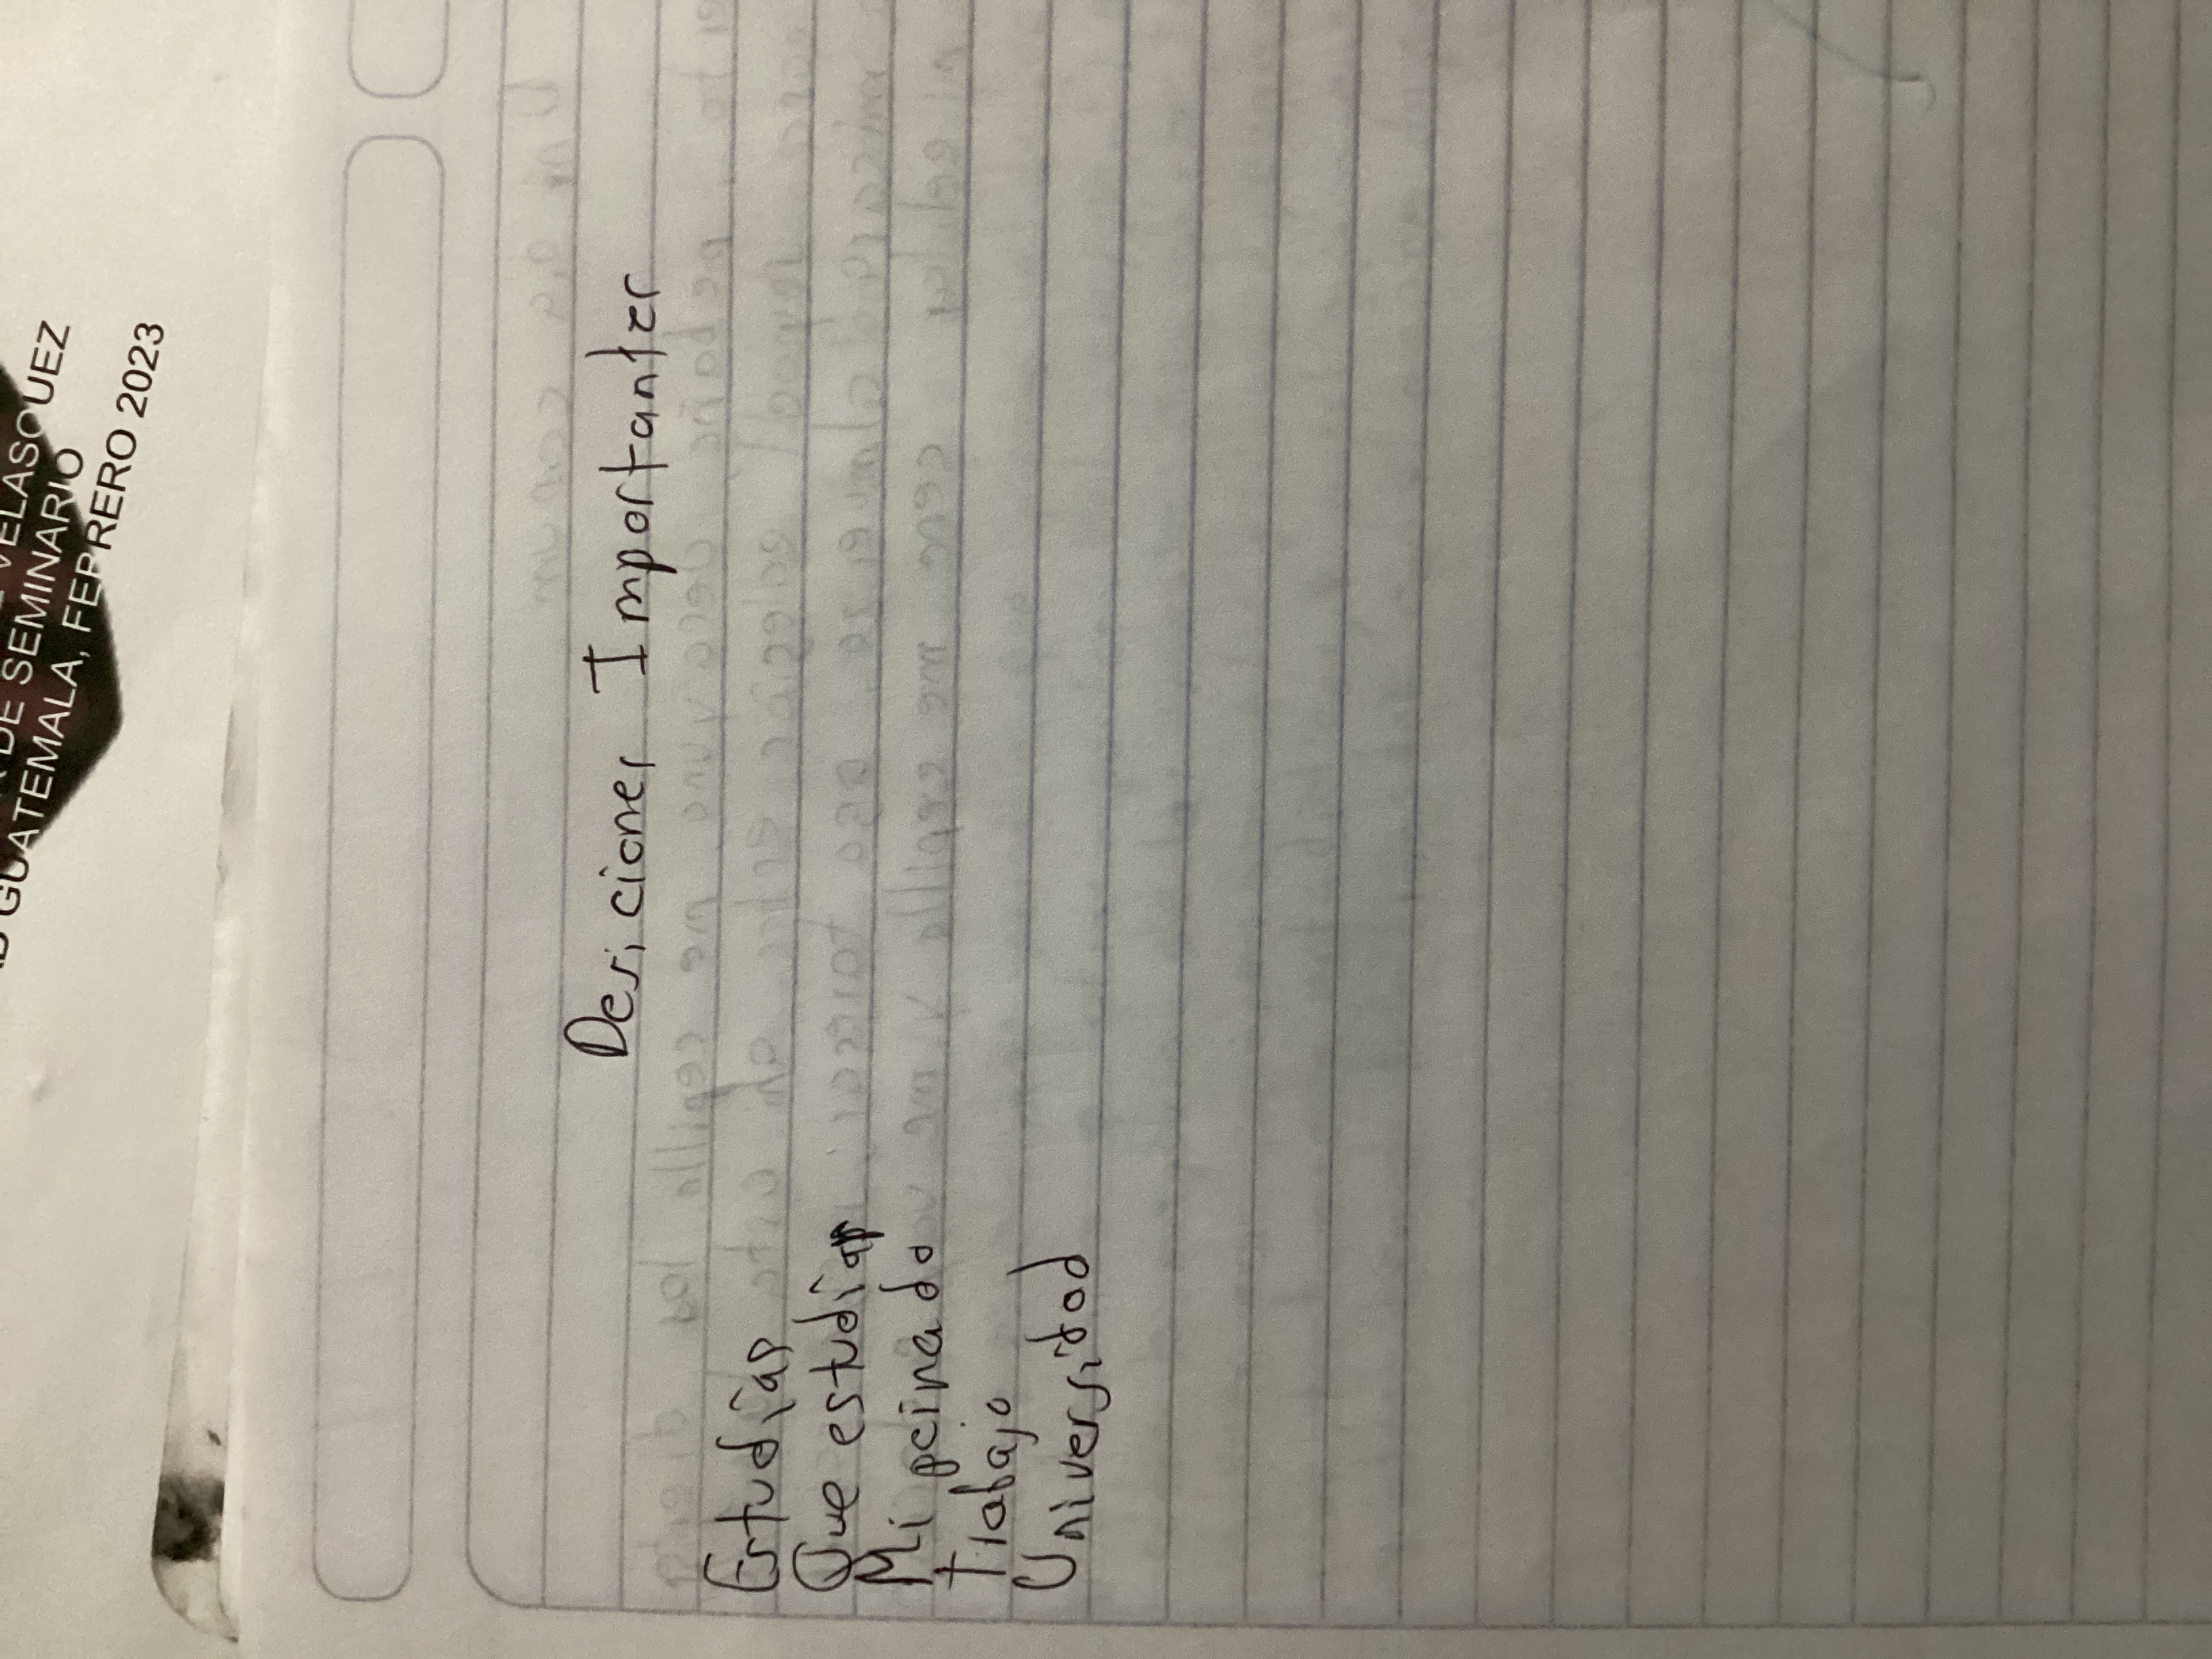 VELASQUEZ
DE SEMINARIO
GUATEMALA, FEBRERO 2023
Desiciones Importantes
Estudiar
Que estudiar
Mi peinado
Trabajo
Universidad